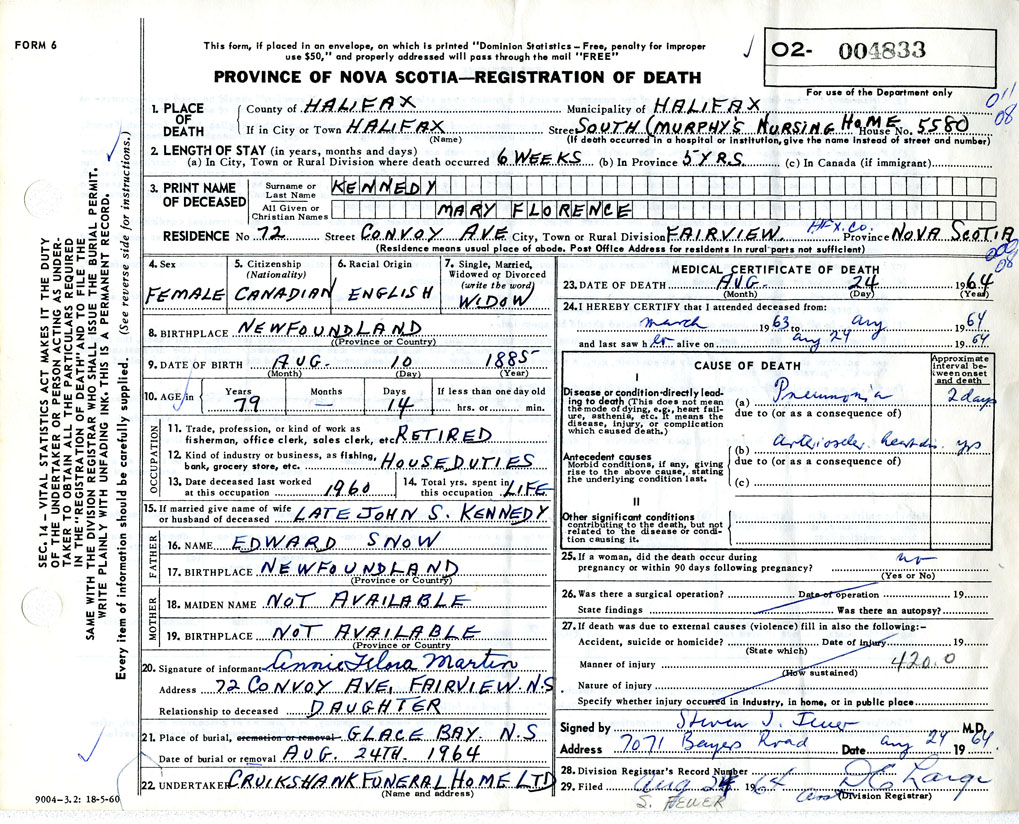 FORM 6
This form, if placed in an envelope, on which is printed "Dominion Statistics – Free, penalty for improper
use $50," and properly addressed will pass through the mail "FREE"
O2- 004833
For use of the Department only
PROVINCE OF NOVA SCOTIA—REGISTRATION OF DEATH
011
08
1. PLACE OF DEATH
County of HALIFAX Municipality of HALIFAX
If in City or Town HALIFAX Street SOUTH (MURPHY'S NURSING HOME House No. 5580)
(Name) (If death occurred in a hospital or institution, give the name instead of street and number)
2. LENGTH OF STAY (in years, months and days)
(a) In City, Town or Rural Division where death occurred 6 WEEKS (b) In Province 5 YRS. (c) In Canada (if immigrant)
3. PRINT NAME OF DECEASED
Surname or Last Name KENNEDY
All Given or Christian Names MARY FLORENCE
RESIDENCE No 72 Street CONVOY AVE City, Town or Rural Division FAIRVIEW. HFX. CO. Province NOVA SCOTIA
(Residence means usual place of abode. Post Office Address for residents in rural parts not sufficient)
08
4. Sex FEMALE
5. Citizenship (Nationality) CANADIAN
6. Racial Origin ENGLISH
7. Single, Married, Widowed or Divorced (write the word) WIDOW
8. BIRTHPLACE NEWFOUNDLAND
(Province or Country)
9. DATE OF BIRTH AUG. 10 1885
(Month) (Day) (Year)
10. AGE in Years 79 Months — Days 14 If less than one day old hrs. or min.
OCCUPATION
11. Trade, profession, or kind of work as fisherman, office clerk, sales clerk, etc RETIRED
12. Kind of industry or business, as fishing, bank, grocery store, etc. HOUSE DUTIES
13. Date deceased last worked at this occupation 1960
14. Total yrs. spent in this occupation LIFE
15. If married give name of wife or husband of deceased LATE JOHN S. KENNEDY
FATHER
16. NAME EDWARD SNOW
17. BIRTHPLACE NEWFOUNDLAND
(Province or Country)
MOTHER
18. MAIDEN NAME NOT AVAILABLE
19. BIRTHPLACE NOT AVAILABLE
(Province or Country)
20. Signature of informant Annie Martin
Address 72 CONVOY AVE, FAIRVIEW. N.S.
Relationship to deceased DAUGHTER
21. Place of burial, cremation or removal GLACE BAY. N.S
Date of burial or removal AUG. 24TH. 1964
22. UNDERTAKER CRUIKSHANK FUNERAL HOME LTD
(Name and address)
MEDICAL CERTIFICATE OF DEATH
23. DATE OF DEATH AUG. 24 1964
(Month) (Day) (Year)
24. I HEREBY CERTIFY that I attended deceased from:
march 1963 to aug 1964
and last saw her alive on aug 24 1964
CAUSE OF DEATH
Approximate interval between onset and death
I
Disease or condition directly leading to death (This does not mean the mode of dying, e.g., heart failure, asthenia, etc. It means the disease, injury, or complication which caused death.)
(a) Pneumonia 2 days
due to (or as a consequence of)
Antecedent causes
Morbid conditions, if any, giving rise to the above cause, stating the underlying condition last.
(b) arterioscler. heart dis. yrs
due to (or as a consequence of)
(c)
II
Other significant conditions
contributing to the death, but not related to the disease or condition causing it.
25. If a woman, did the death occur during pregnancy or within 90 days following pregnancy? no
(Yes or No)
26. Was there a surgical operation? Date of operation 19
State findings Was there an autopsy?
27. If death was due to external causes (violence) fill in also the following:-
Accident, suicide or homicide? Date of injury 19
(State which)
Manner of injury 420.0
(How sustained)
Nature of injury
Specify whether injury occurred in industry, in home, or in public place
Signed by Steven J. Fewer M.D.
Address 7071 Bayers Road Date aug 24 1964
28. Division Registrar's Record Number
29. Filed Aug 24 1964
(Division Registrar)
S. FEWER
SEC. 14 – VITAL STATISTICS ACT MAKES IT THE DUTY
OF THE UNDERTAKER OR PERSON ACTING AS UNDER-
TAKER TO OBTAIN ALL THE PARTICULARS REQUIRED
IN THE "REGISTRATION OF DEATH" AND TO FILE THE
SAME WITH THE DIVISION REGISTRAR WHO SHALL ISSUE THE BURIAL PERMIT.
WRITE PLAINLY WITH UNFADING INK. THIS IS A PERMANENT RECORD.
Every item of information should be carefully supplied. (See reverse side for instructions.)
9004–3.2: 18-5-60